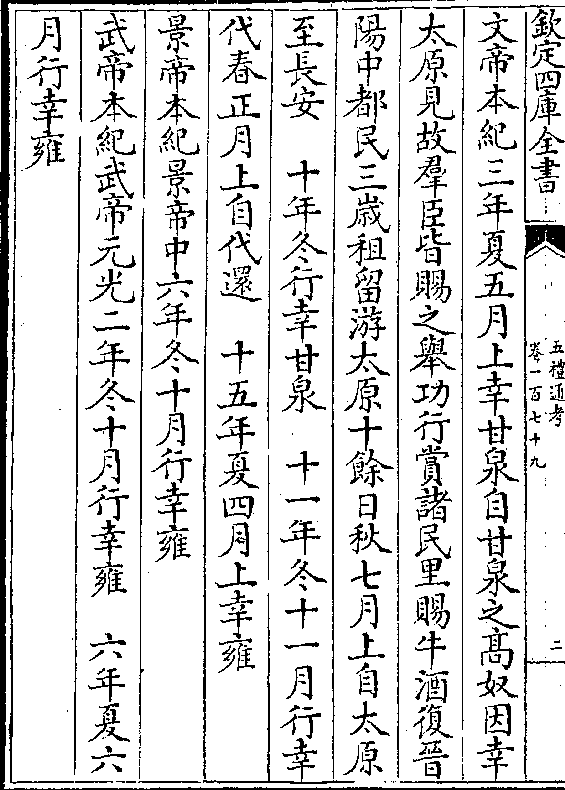 欽定四庫全書
五禮通考
卷一百七十九
二
文帝本紀三年夏五月上幸甘泉自甘泉之髙奴因幸
太原見故羣臣皆賜之舉功行賞諸民里賜牛酒復晉
陽中都民三歳租留游太原十餘日秋七月上自太原
至長安 十年冬行幸甘泉 十一年冬十一月行幸
代春正月上自代還 十五年夏四月上幸雍
景帝本紀景帝中六年冬十月行幸雍
武帝本紀武帝元光二年冬十月行幸雍 六年夏六
月行幸雍